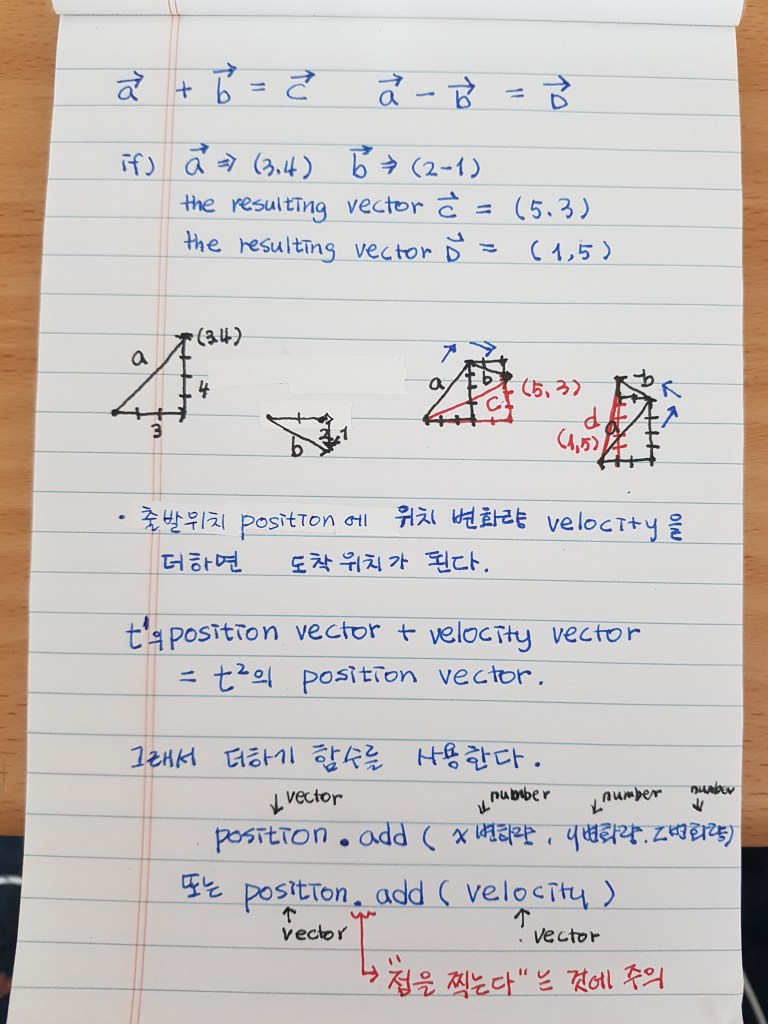 a⃗ + b⃗ = c⃗ a⃗ - b⃗ = D⃗
if) a⃗ ⇒ (3.4) b⃗ ⇒ (2-1)
the resulting vector c⃗ = (5.3)
the resulting vector D⃗ = (1,5)
a (3.4) 4 3
b 2 -1
a b c (5,3)
-b d a (1,5)
• 출발위치 position에 위치 변화량 velocity을
더하면 도착위치가 된다.
t¹의 position vector + velocity vector
= t²의 position vector.
그래서 더하기 함수를 사용한다.
↓vector ↓number ↓number number↓
position.add(x변화량, y변화량.z변화량)
또는 position.add(velocity)
↑vector ↑vector
→"점을 찍는다"는 것에 주의